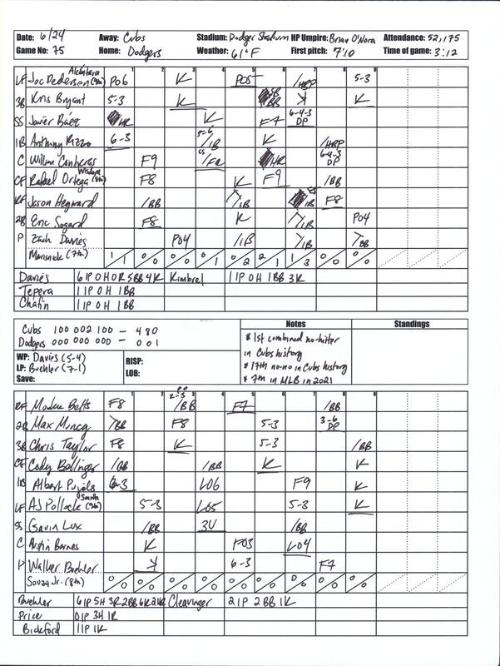 Date: 6/24 Away: Cubs Stadium: Dodger Stadium HP Umpire: Brian O'Nora Attendance: 52,175
Game No: 75 Home: Dodgers Weather: 61°F First pitch: 7:10 Time of game: 3:12
1 2 3 4 5 6 7 8 9
Alcantara
LF Joc Pederson (7th) P06 K P05 /HBP 5-3
3B Kris Bryant 5-3 K BB K K
SS Javier Baez HR K F7 6-4-3 DP
1B Anthony Rizzo 6-3 /1B K /HBP
C Willson Contreras F9 HR 6-4-3 DP
Wisdom
CF Rafael Ortega (8th) F8 K F9 /BB
RF Jason Heyward /BB /1B 1B F8
2B Eric Sogard F8 K /1B P04
P Zach Davies P04 /1B /1B /BB
Marisnick (7th) 1/1 0/0 0/0 0/2 2/1 1/3 0/0 0/0
Davies 6IP 0H 0R 5BB 4K Kimbrel 1IP 0H 1BB 3K
Tepera 1IP 0H 1BB
Chafin 1IP 0H 1BB
Cubs 100 002 100 - 4 8 0
Dodgers 000 000 000 - 0 0 1
WP: Davies (5-4)
LP: Buehler (7-1)
Save:
RISP:
LOB:
Notes
* 1st combined no-hitter
in Cubs history
* 17th no-no in Cubs history
* 7th in MLB in 2021
Standings
1 2 3 4 5 6 7 8 9
RF Mookie Betts F8 /BB F7 /BB
2B Max Muncy /BB F8 5-3 3-6 DP
3B Chris Taylor F8 K 5-3 /BB
CF Cody Bellinger /BB /BB K K
1B Albert Pujols 6-3 L06 F9 K
Smith
LF AJ Pollock (9th) 5-3 L05 5-3 K
SS Gavin Lux /BB 3U /BB
C Austin Barnes K F03 L04
P Walker Buehler K 6-3 F7
Souza Jr. (8th) 0/0 0/0 0/0 0/0 0/0 0/0 0/0 0/0 0/0
Buehler 6IP 5H 3R 2BB Cleavinger 2IP 2BB 1K
Price 0IP 3H 1R
Bickford 1IP 1K